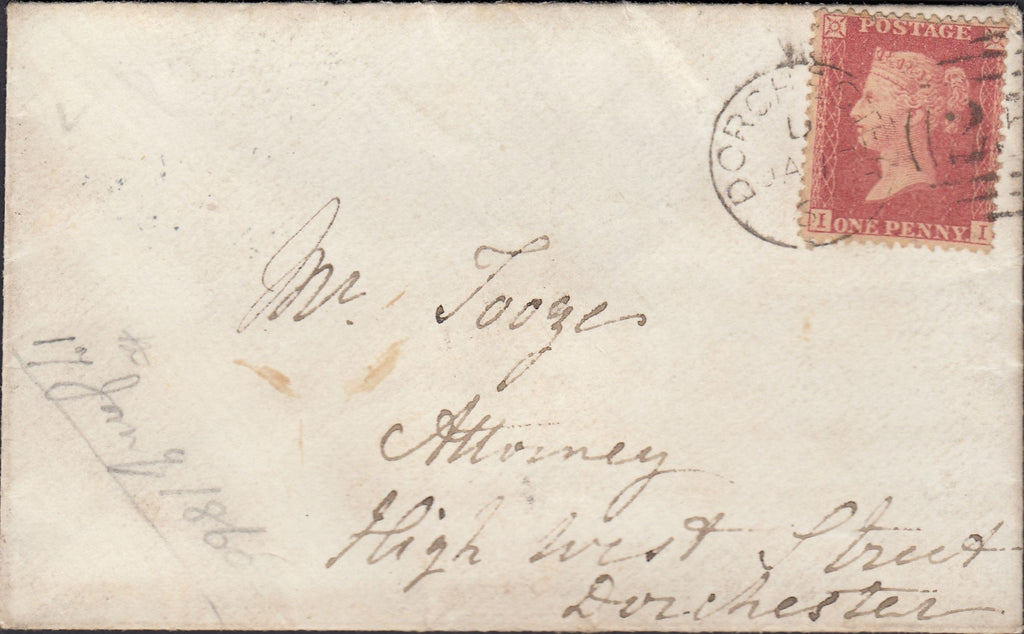 POSTAGE
ONE PENNY
I I
DORCH
JA
2
Mr. Tooze
Attorney
High West Street
Dorchester
17th Jany 1860